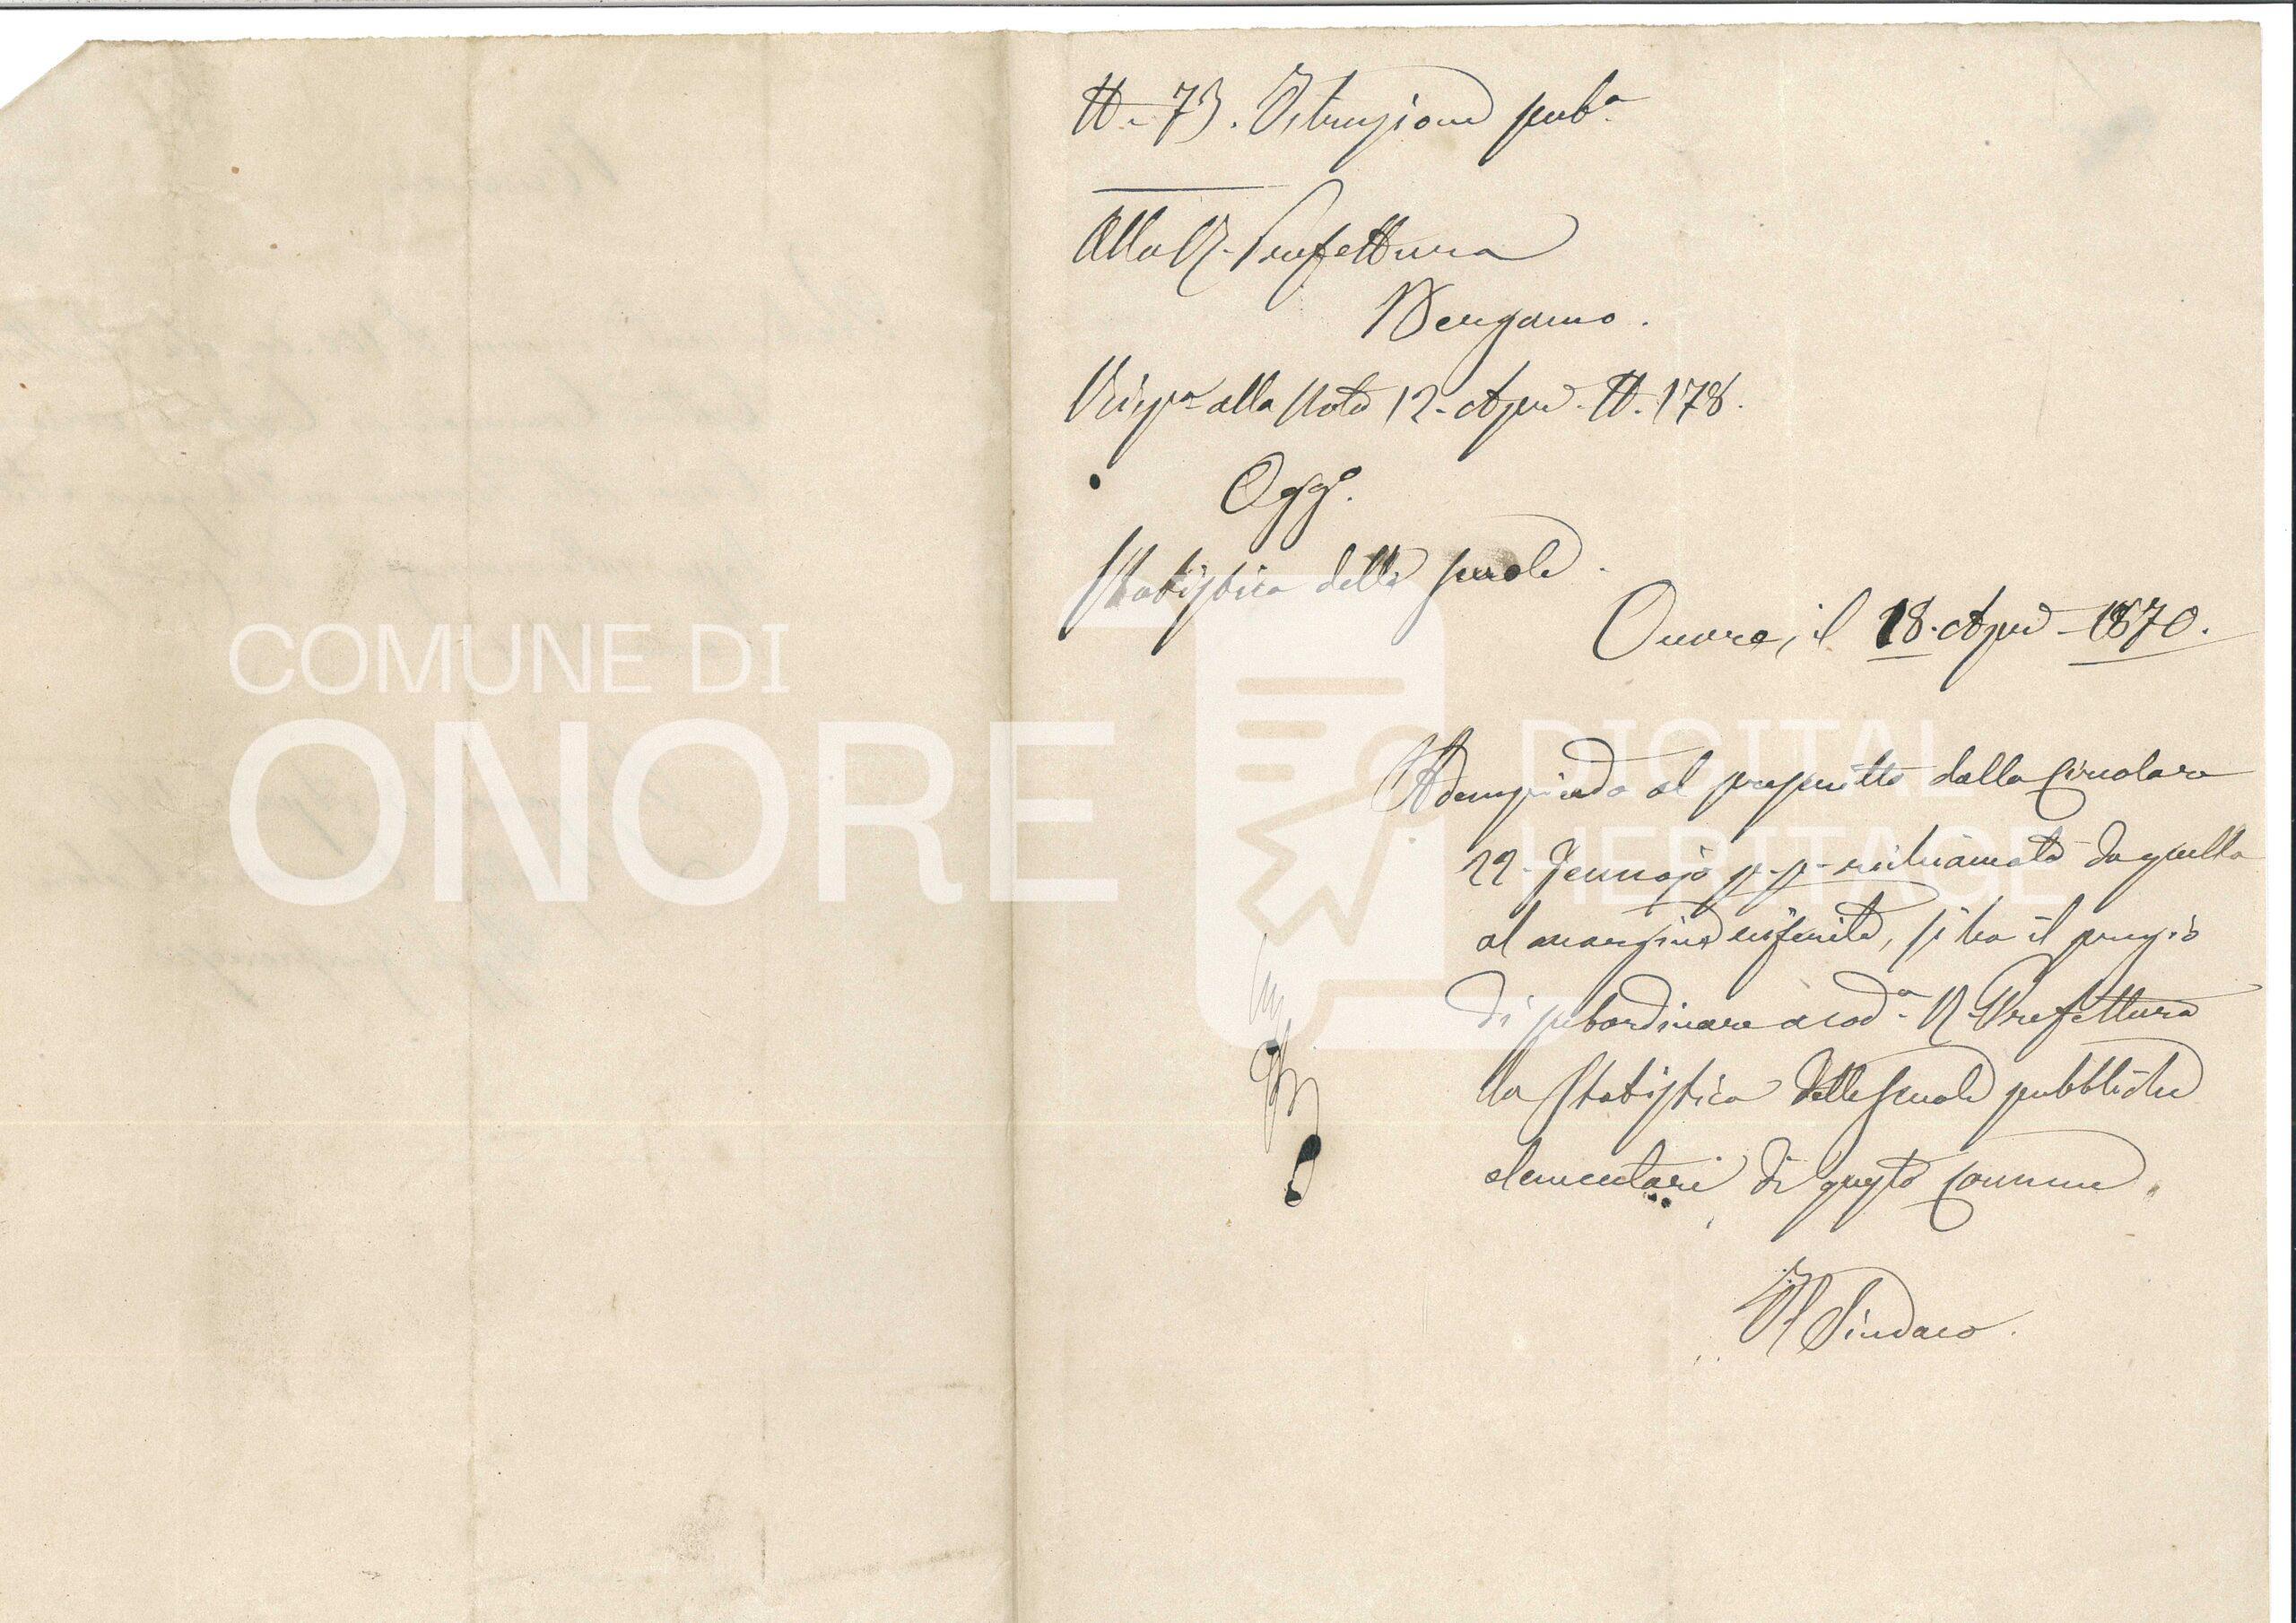 N. 73. Istruzione pub.a
Alla R. Prefettura
Bergamo.
Risp.a alla Nota 12. Apr.e N. 178.
Ogg.o
Statistica delle scuole.
Onore, il 18. Apr.e 1870.
Adempiendo al prescritto dalla Circolare
22. Gennajo p. p. richiamata da quella
al margine riferita, si ha il pregio
di subordinare a cod.a R. Prefettura
la Statistica delle scuole pubbliche
elementari di questo Comune.
Il Sindaco.
COMUNE DI
ONORE
DIGITAL
HERITAGE